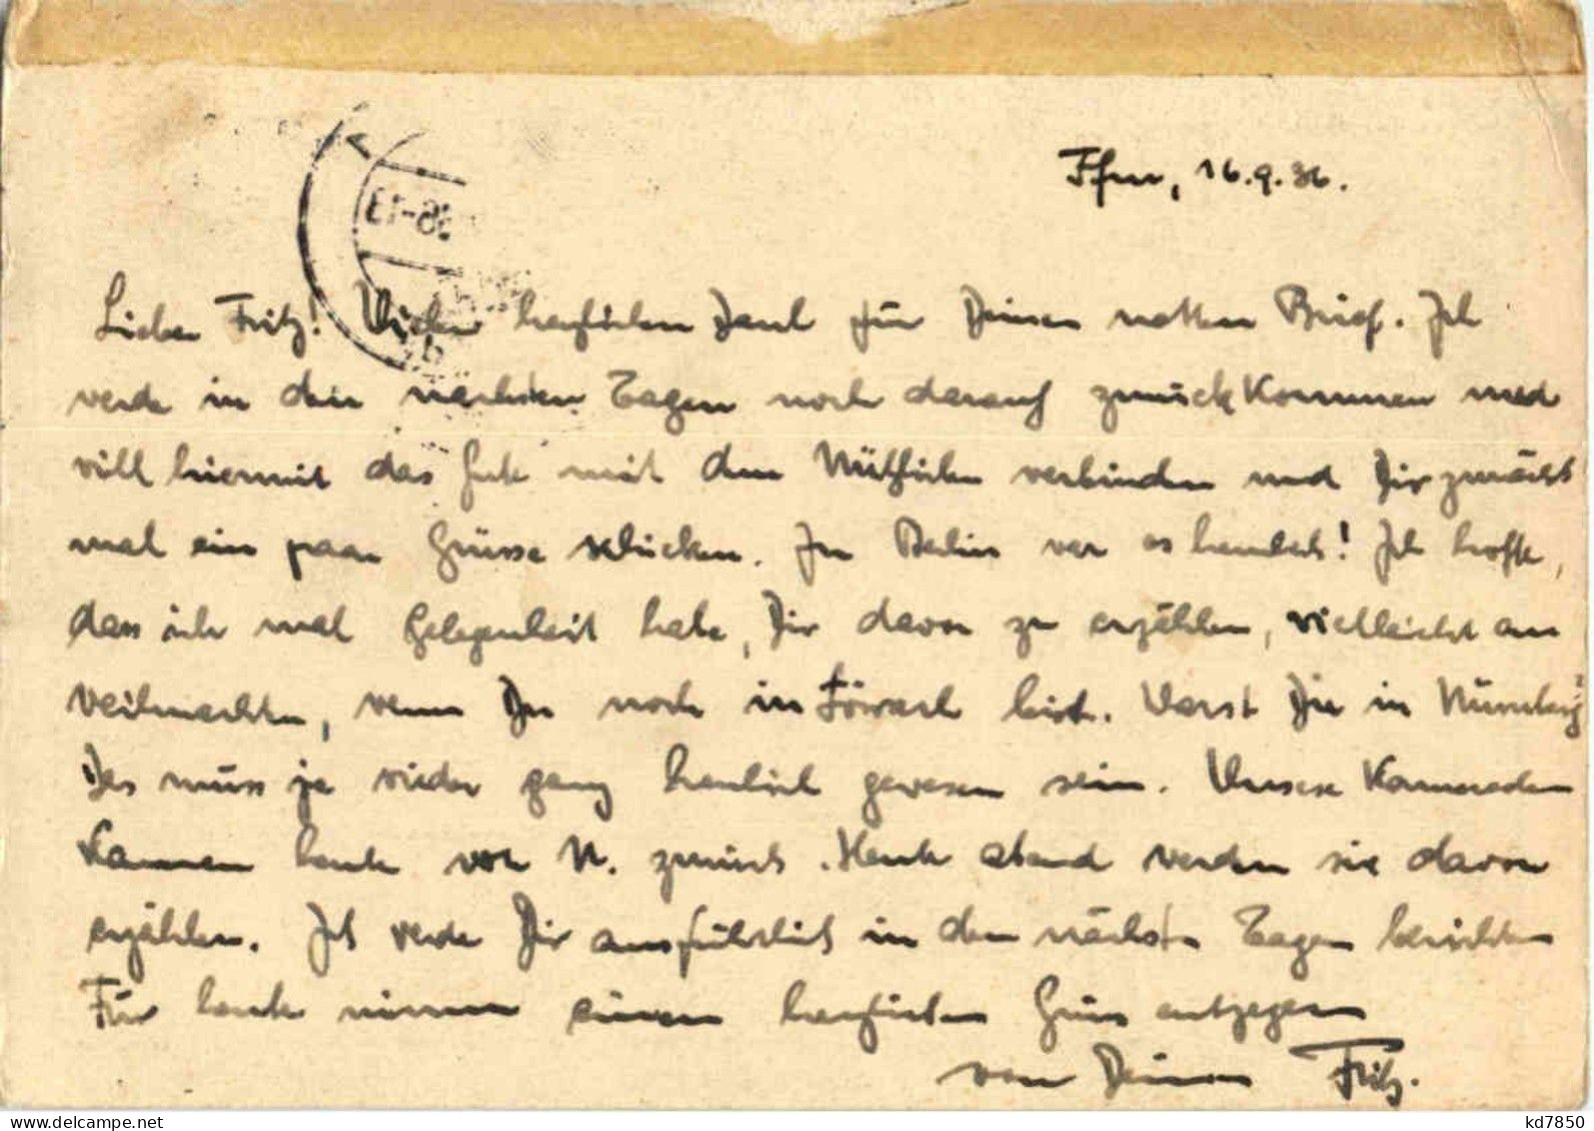 Ffm, 16.9.36.
Lieber Fritz! Vielen herzlichen Dank für Deinen netten Brief. Ich
werde in den nächsten Tagen noch darauf zurückkommen und
will hiermit das Gute mit dem Nützlichen verbinden und Dir zunächst
mal ein paar Grüsse schicken. In Berlin war es herrlich! Ich hoffe,
dass ich mal Gelegenheit habe, Dir davon zu erzählen, vielleicht an
Weihnachten, wenn Du noch in Lörrach bist. Warst Du in Nürnberg?
Das muss ja wieder ganz herrlich gewesen sein. Unsere Kameraden
kamen heute von N. zurück. Heute abend werden sie davon
erzählen. Ich werde Dir ausführlich in den nächsten Tagen berichten
Für heute nimm einen herzlichen Gruss entgegen
von Deinem Fritz.
kd7850